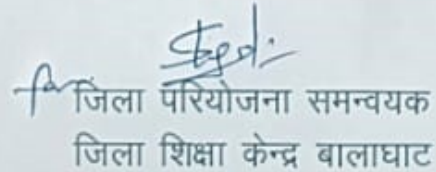 जिला परियोजना समन्वयक
जिला शिक्षा केन्द्र बालाघाट